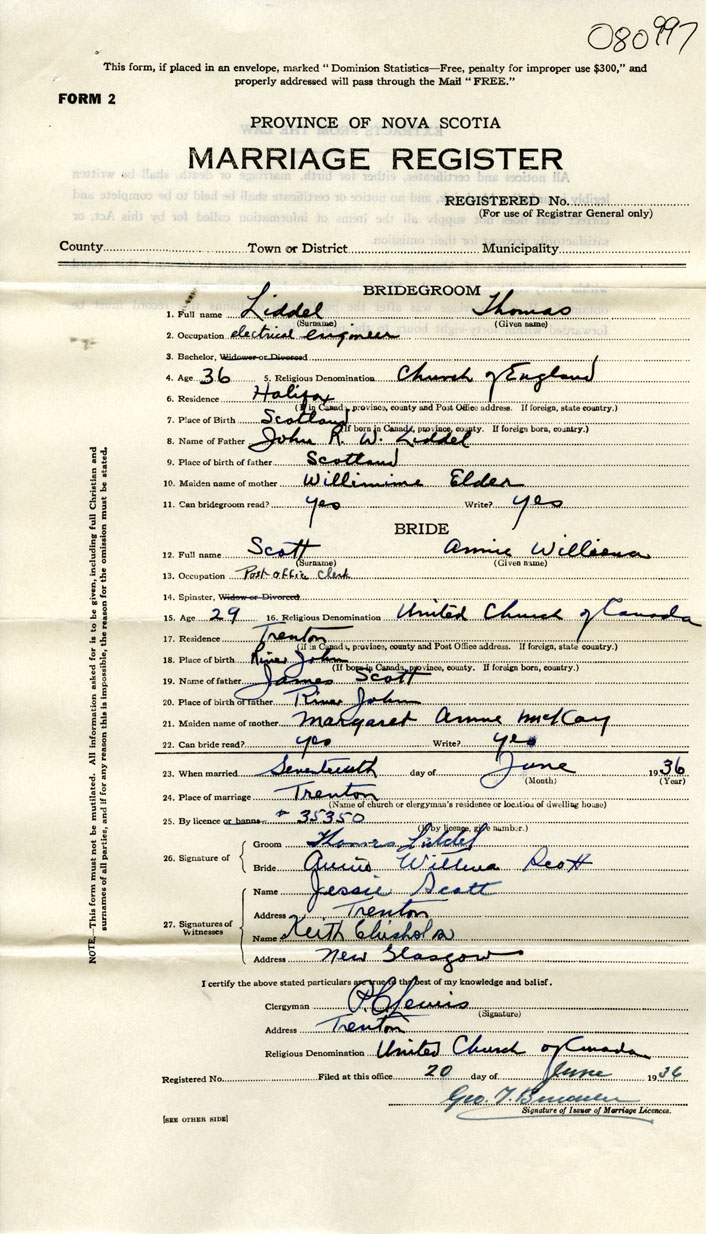 080997
This form, if placed in an envelope, marked "Dominion Statistics—Free, penalty for improper use $300," and
properly addressed will pass through the Mail "FREE."
FORM 2
PROVINCE OF NOVA SCOTIA
MARRIAGE REGISTER
REGISTERED No.
(For use of Registrar General only)
County Town or District Municipality
BRIDEGROOM
1. Full name Liddel Thomas
(Surname) (Given name)
2. Occupation electrical engineer
3. Bachelor, Widower or Divorced
4. Age 36 5. Religious Denomination Church of England
6. Residence Halifax
(If in Canada, province, county and Post Office address. If foreign, state country.)
7. Place of Birth Scotland
(If born in Canada, province, county. If foreign born, country.)
8. Name of Father John R. W. Liddel
9. Place of birth of father Scotland
10. Maiden name of mother Willimine Elder
11. Can bridegroom read? yes Write? yes
BRIDE
12. Full name Scott Annie
(Surname) (Given name)
13. Occupation Post office Clerk
14. Spinster, Widow or Divorced
15. Age 29 16. Religious Denomination United Church of Canada
17. Residence Trenton
(If in Canada, province, county and Post Office address. If foreign, state country.)
18. Place of birth River John
(If born in Canada, province, county. If foreign born, country.)
19. Name of father James Scott
20. Place of birth of father River John
21. Maiden name of mother Margaret Annie McKay
22. Can bride read? yes Write? yes
23. When married Seventeenth day of June 1936
(Month) (Year)
24. Place of marriage Trenton
(Name of church or clergyman's residence or location of dwelling house)
25. By licence or banns # 35350
(If by licence, give number.)
26. Signature of
Groom Thomas Liddel
Bride Annie Willena Scott
27. Signatures of Witnesses
Name Jessie Scott
Address Trenton
Name Keith Chisholm
Address New Glasgow
I certify the above stated particulars are true to the best of my knowledge and belief.
Clergyman Lewis
(Signature)
Address Trenton
Religious Denomination United Church of Canada
Registered No. Filed at this office 20 day of June 1936
Geo. T.
Signature of Issuer of Marriage Licences.
[SEE OTHER SIDE]
NOTE.—This form must not be mutilated. All information asked for is to be given, including full Christian and
surnames of all parties, and if for any reason this is impossible, the reason for the omission must be stated.